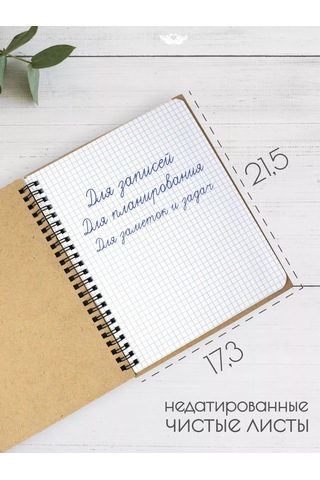 Для записей
Для планирования
Для заметок и задач
21,5
17,3
недатированные
чистые листы